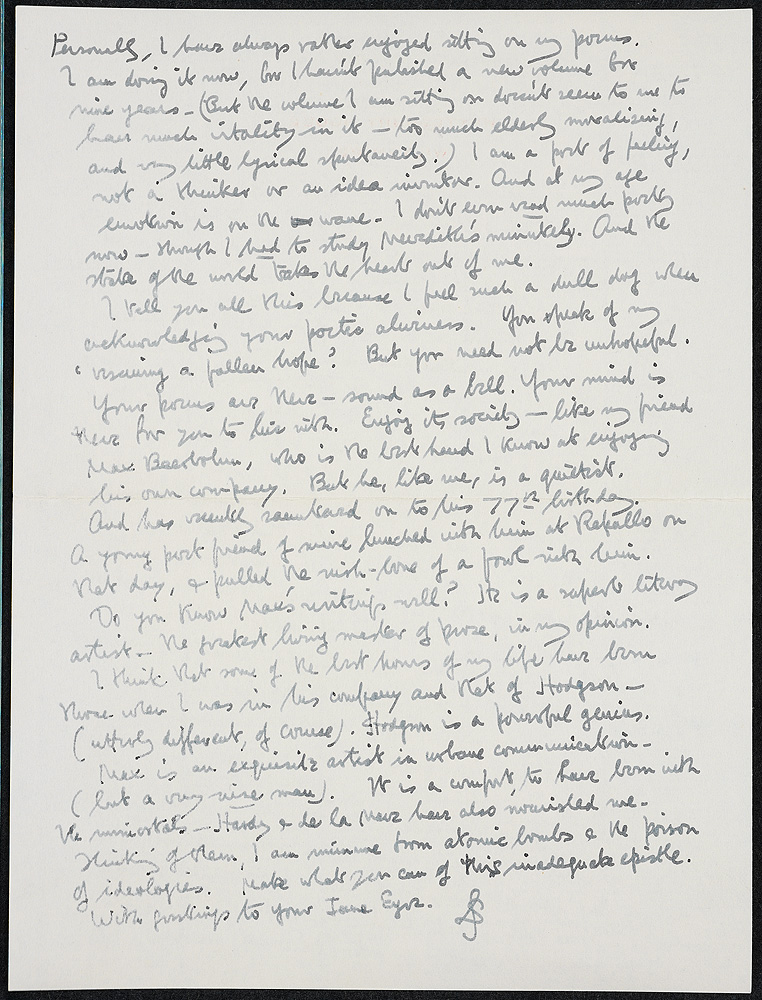 Personally, I have always rather enjoyed sitting on my poems.
I am doing it now, for I haven't published a new volume for
nine years – (But the volume I am sitting on doesn't seem to me to
have much vitality in it – too much elderly moralizing,
and very little lyrical spontaneity.) I am a poet of feeling,
not a thinker or an idea inventor. And at my age
emotion is on the wane – I don't even read much poetry
now – though I had to study Meredith's minutely. And the
state of the world takes the heart out of me.
I tell you all this because I feel such a dull dog when
acknowledging your poetic aliveness. You speak of my
'rescuing a fallen hope'? But you need not be unhopeful.
Your poems are there – sound as a bell. Your mind is
there for you to live with. Enjoy its society – like my friend
Max Beerbohm, who is the best hand I know at enjoying
his own company. But he, like me, is a quietist.
And has recently sauntered on to his 77th birthday.
A young poet friend of mine lunched with him at Rapallo on
that day, & pulled the wish-bone of a fowl with him.
Do you know Max's writings well? He is a superb literary
artist – the greatest living master of prose, in my opinion.
I think that some of the best hours of my life have been
those when I was in his company and that of Hodgson –
(utterly different, of course). Hodgson is a powerful genius.
Max is an exquisite artist in urbane communication –
(but a very wise man). It is a comfort, to have been with
the immortals – Hardy & de la Mare have also nourished me –
Thinking of them, I am immune from atomic bombs & the poison
of ideologies. Make what you can of this inadequate epistle.
With greetings to your Jane Eyre. SS